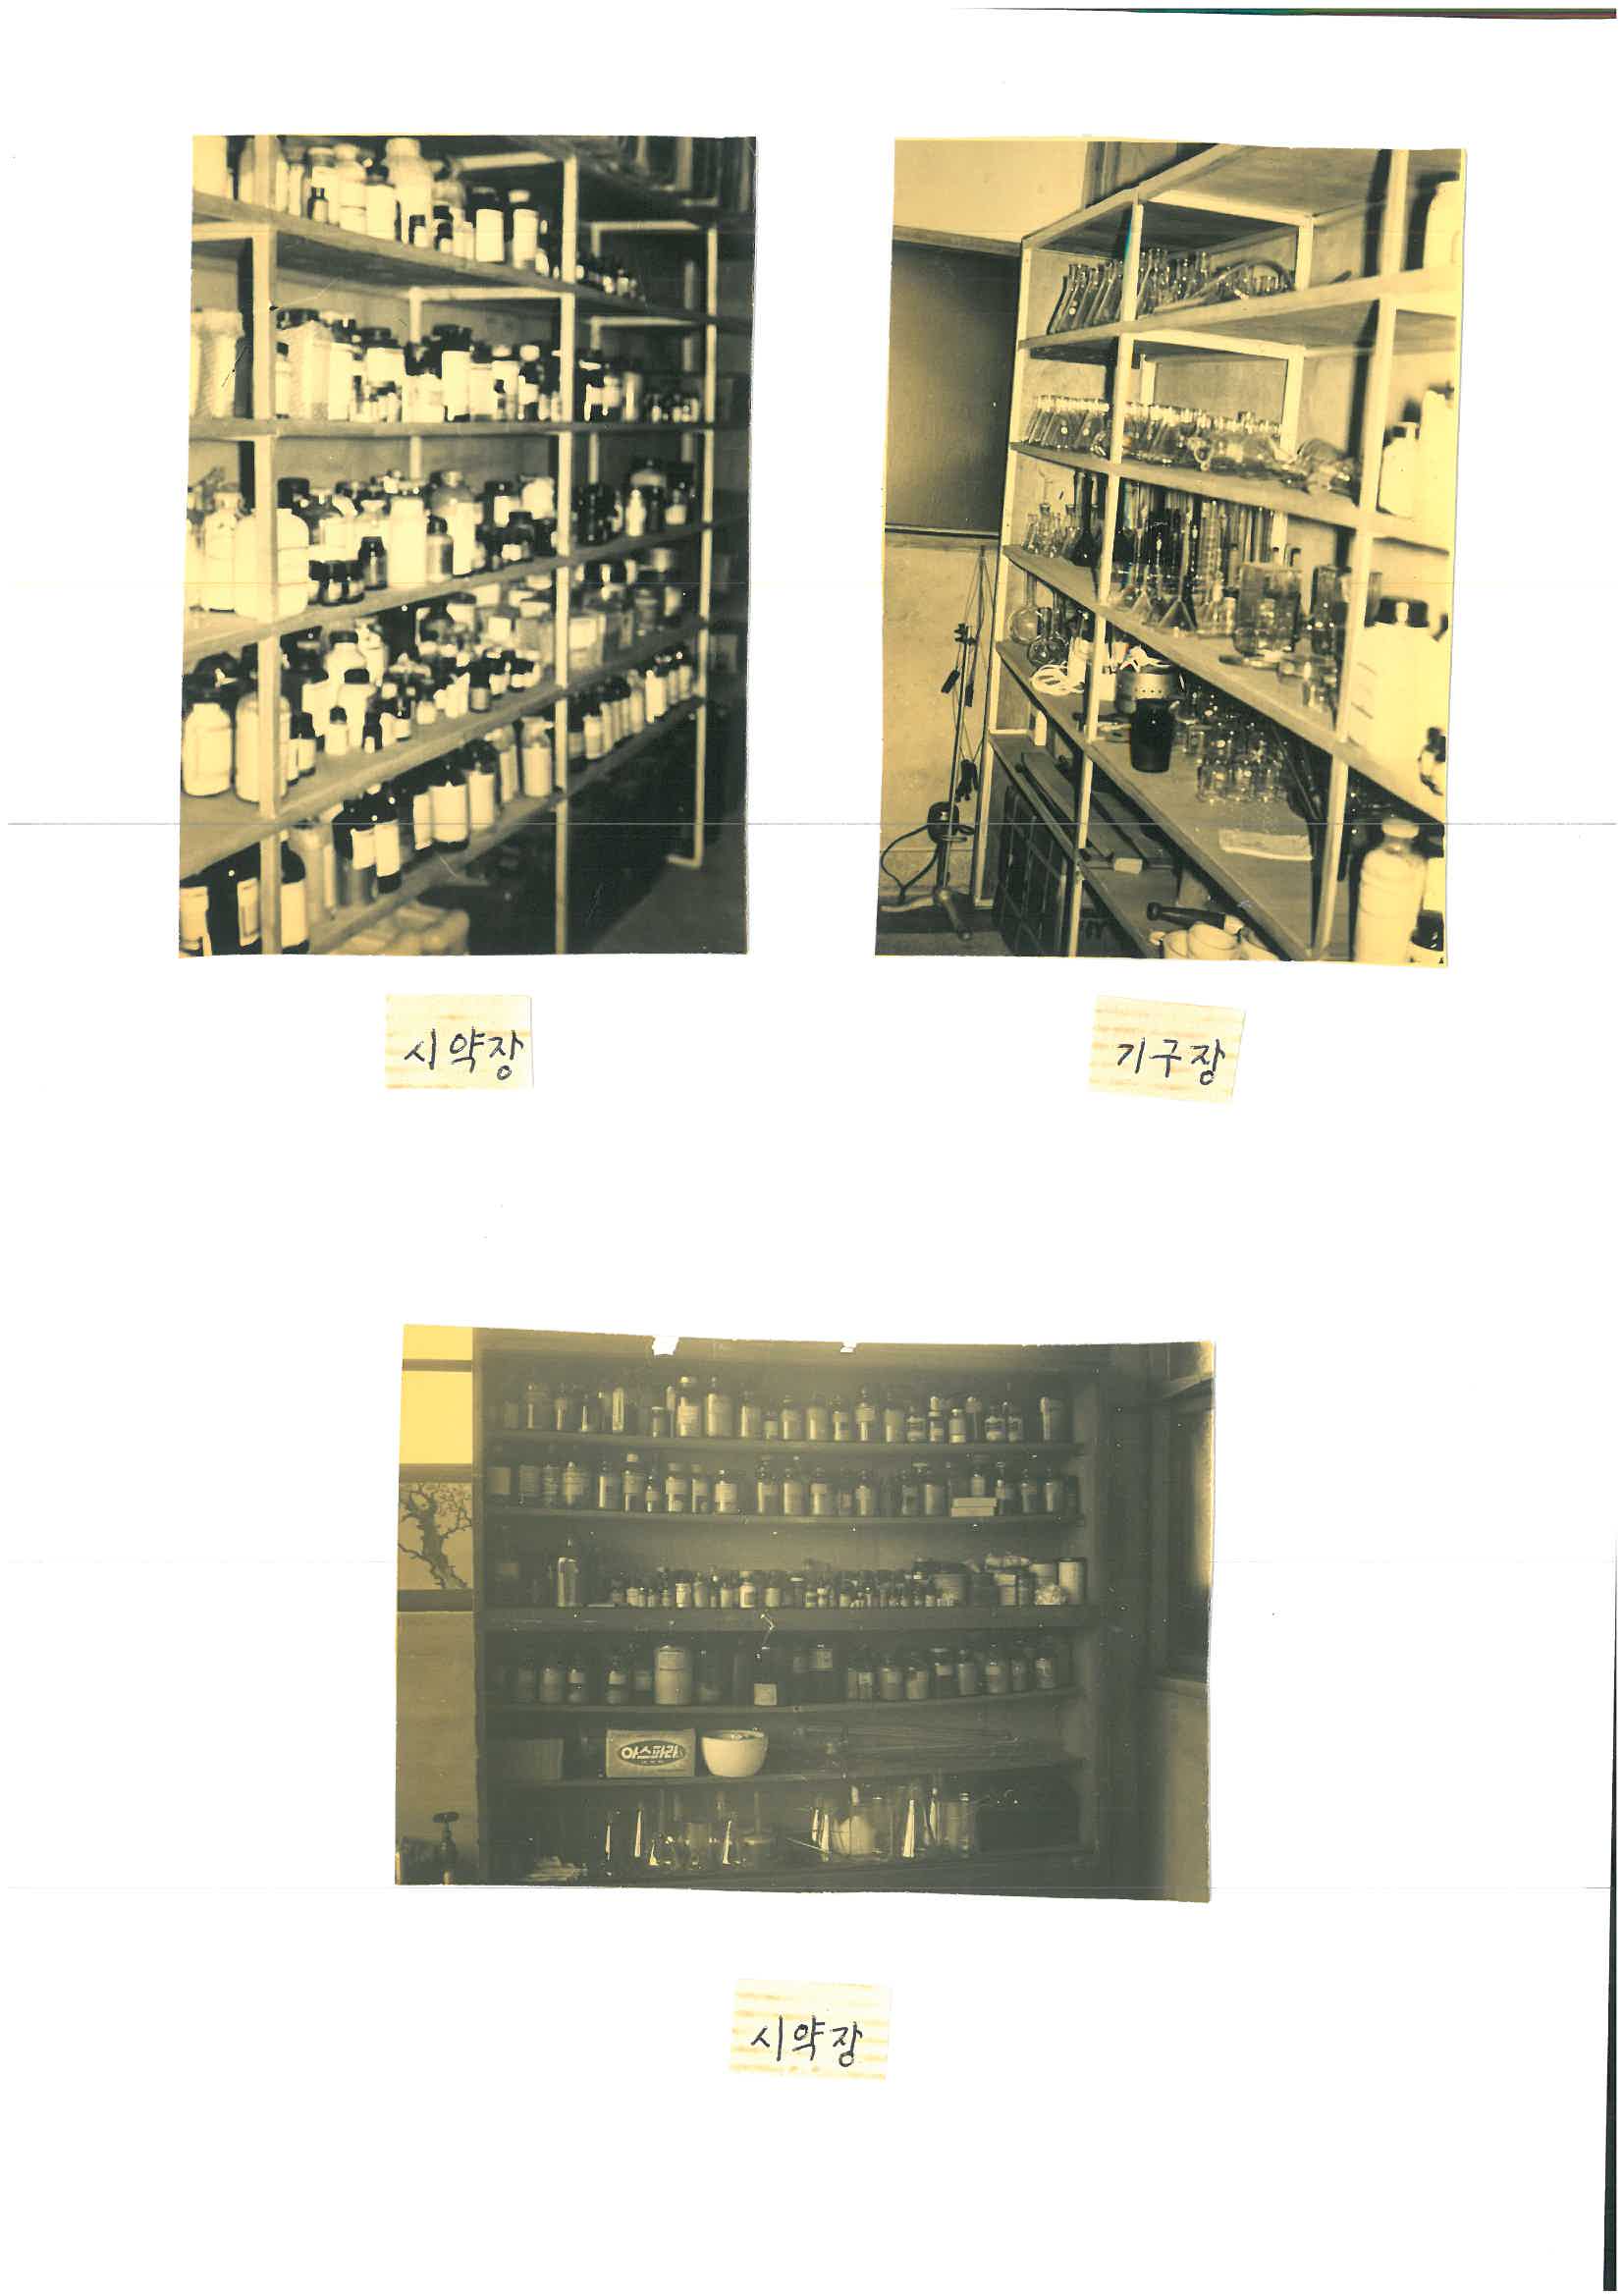 시약장
기구장
아스파라
시약장